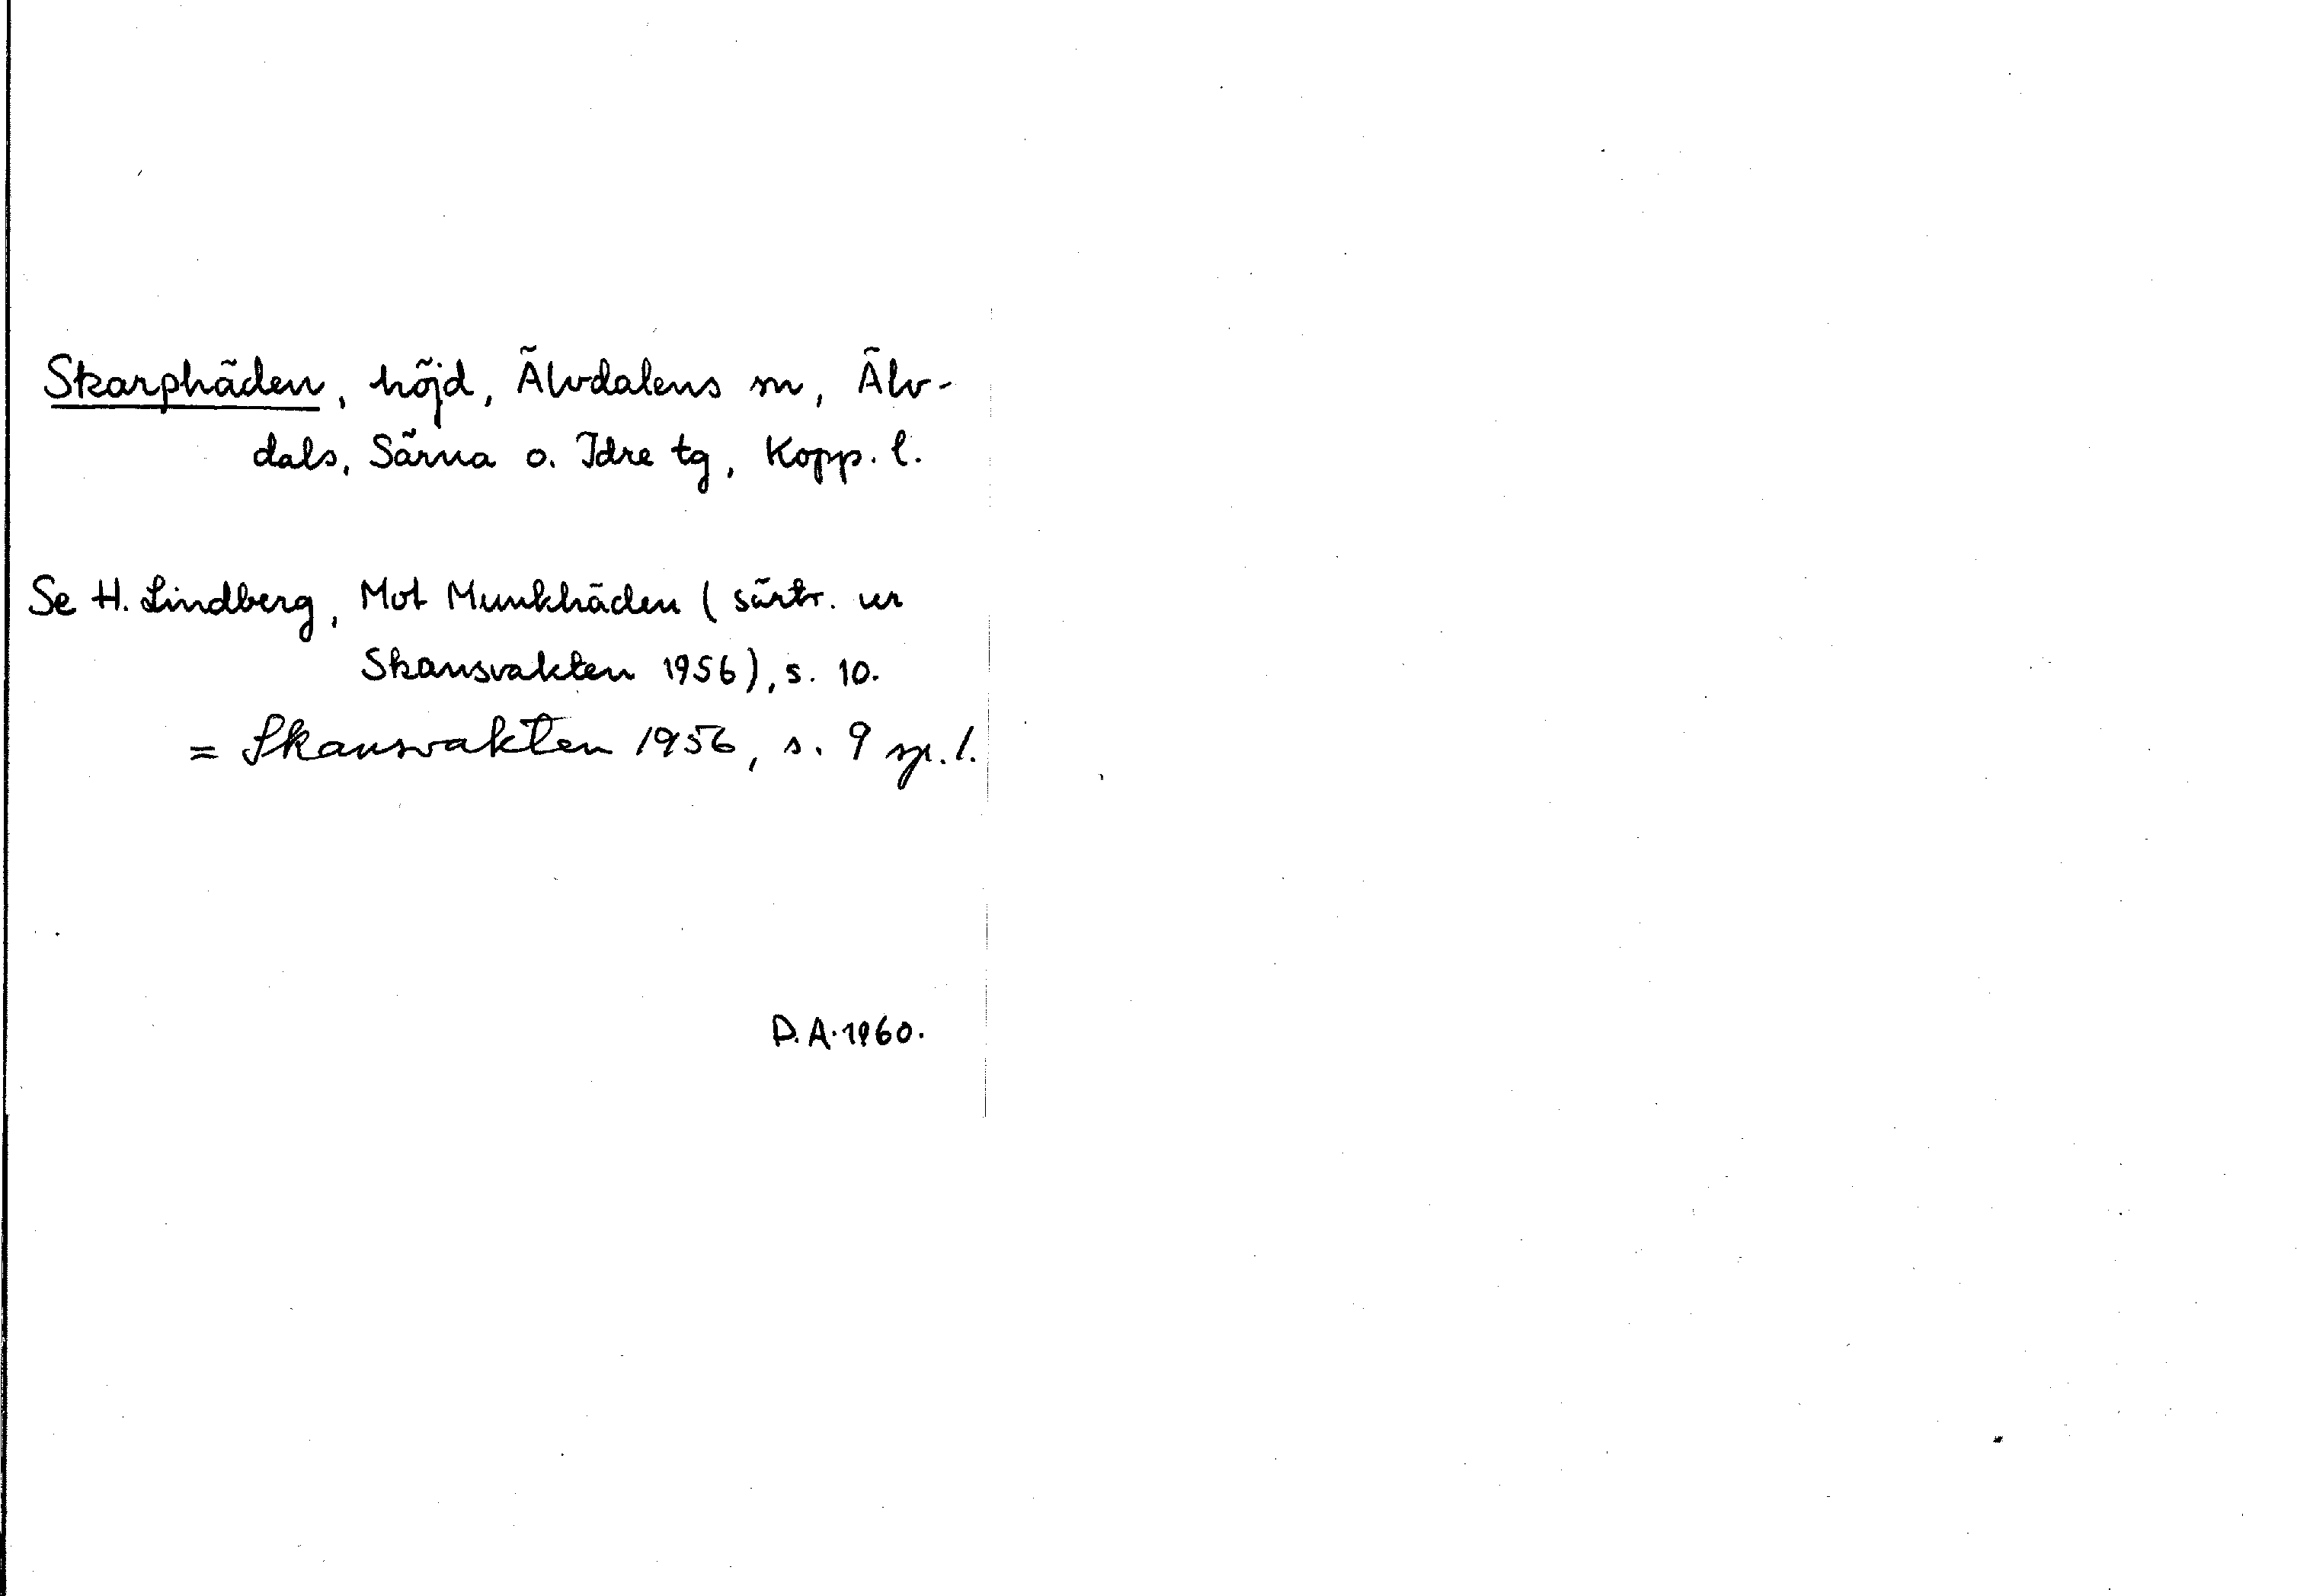 Skarphäden, höjd, Älvdalens sn, Älv-
dals, Särna o. Idre tg, Kopp. l.
Se H. Lindberg, Mot Munkhäden (särtr. ur
Skansvakten 1956), s. 10.
= Skansvakten 1956, s. 9 sp. 1.
D.A. 1960.